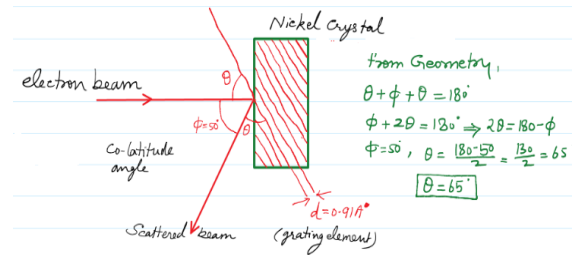 Nickel Crystal
electron beam
θ
ϕ=50°
θ
Co-latitude
angle
Scattered beam
d=0.91A°
(grating element)
from Geometry,
θ+ϕ+θ=180°
ϕ+2θ=180° ⇒ 2θ=180-ϕ
ϕ=50°, θ= (180-50)/2 = 130/2 = 65
θ=65°